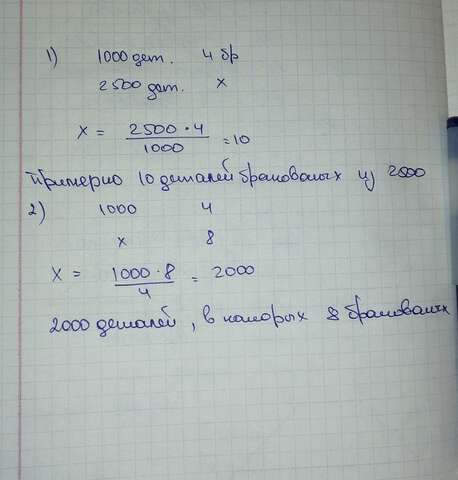 1) 1000 дет. 4 бр
2500 дет. x
x = 2500 · 4 / 1000 = 10
Примерно 10 деталей бракованых из 2500
2) 1000 4
x 8
x = 1000 · 8 / 4 = 2000
2000 деталей, в которых 8 бракованых